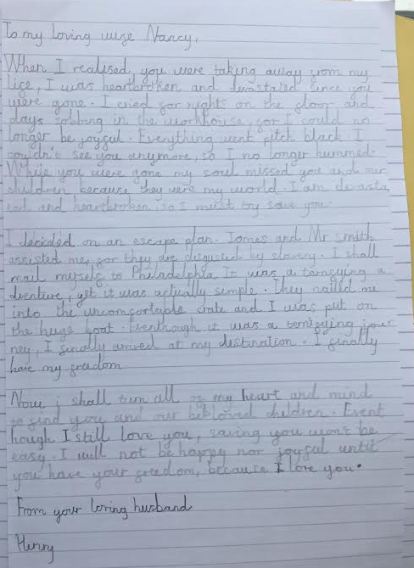 To my loving wife Nancy,
When I realised, you were taking away from my
life, I was heartbroken and devastated since you
were gone. I cried for nights on the floor and
days sobbing in the workhouse, for I could no
longer be joyful. Everything went pitch black. I
couldn't see you anymore, so I no longer hummed.
While you were gone my soul missed you and our
children because they were my world. I am devasta
ted and heartbroken, so I must try save you.
I decided on an escape plan. James and Mr smith
assisted me, for they are disgusted by slavery. I shall
mail myself to Philadelphia. It was a terrifying a
dventure, yet it was actually simple. They nailed me
into the uncomfortable crate and I was put on
the huge boat. Eventhough it was a terrifying jour
ney, I finally arrived at my destination. I finally
have my freedom
Now, i shall turn all of my heart and mind
to find you and our beloved children. Event
hough I still love you, saving you won't be
easy. I will not be happy nor joyful until
you have your freedom, because I love you.
From your loving husband
Henry